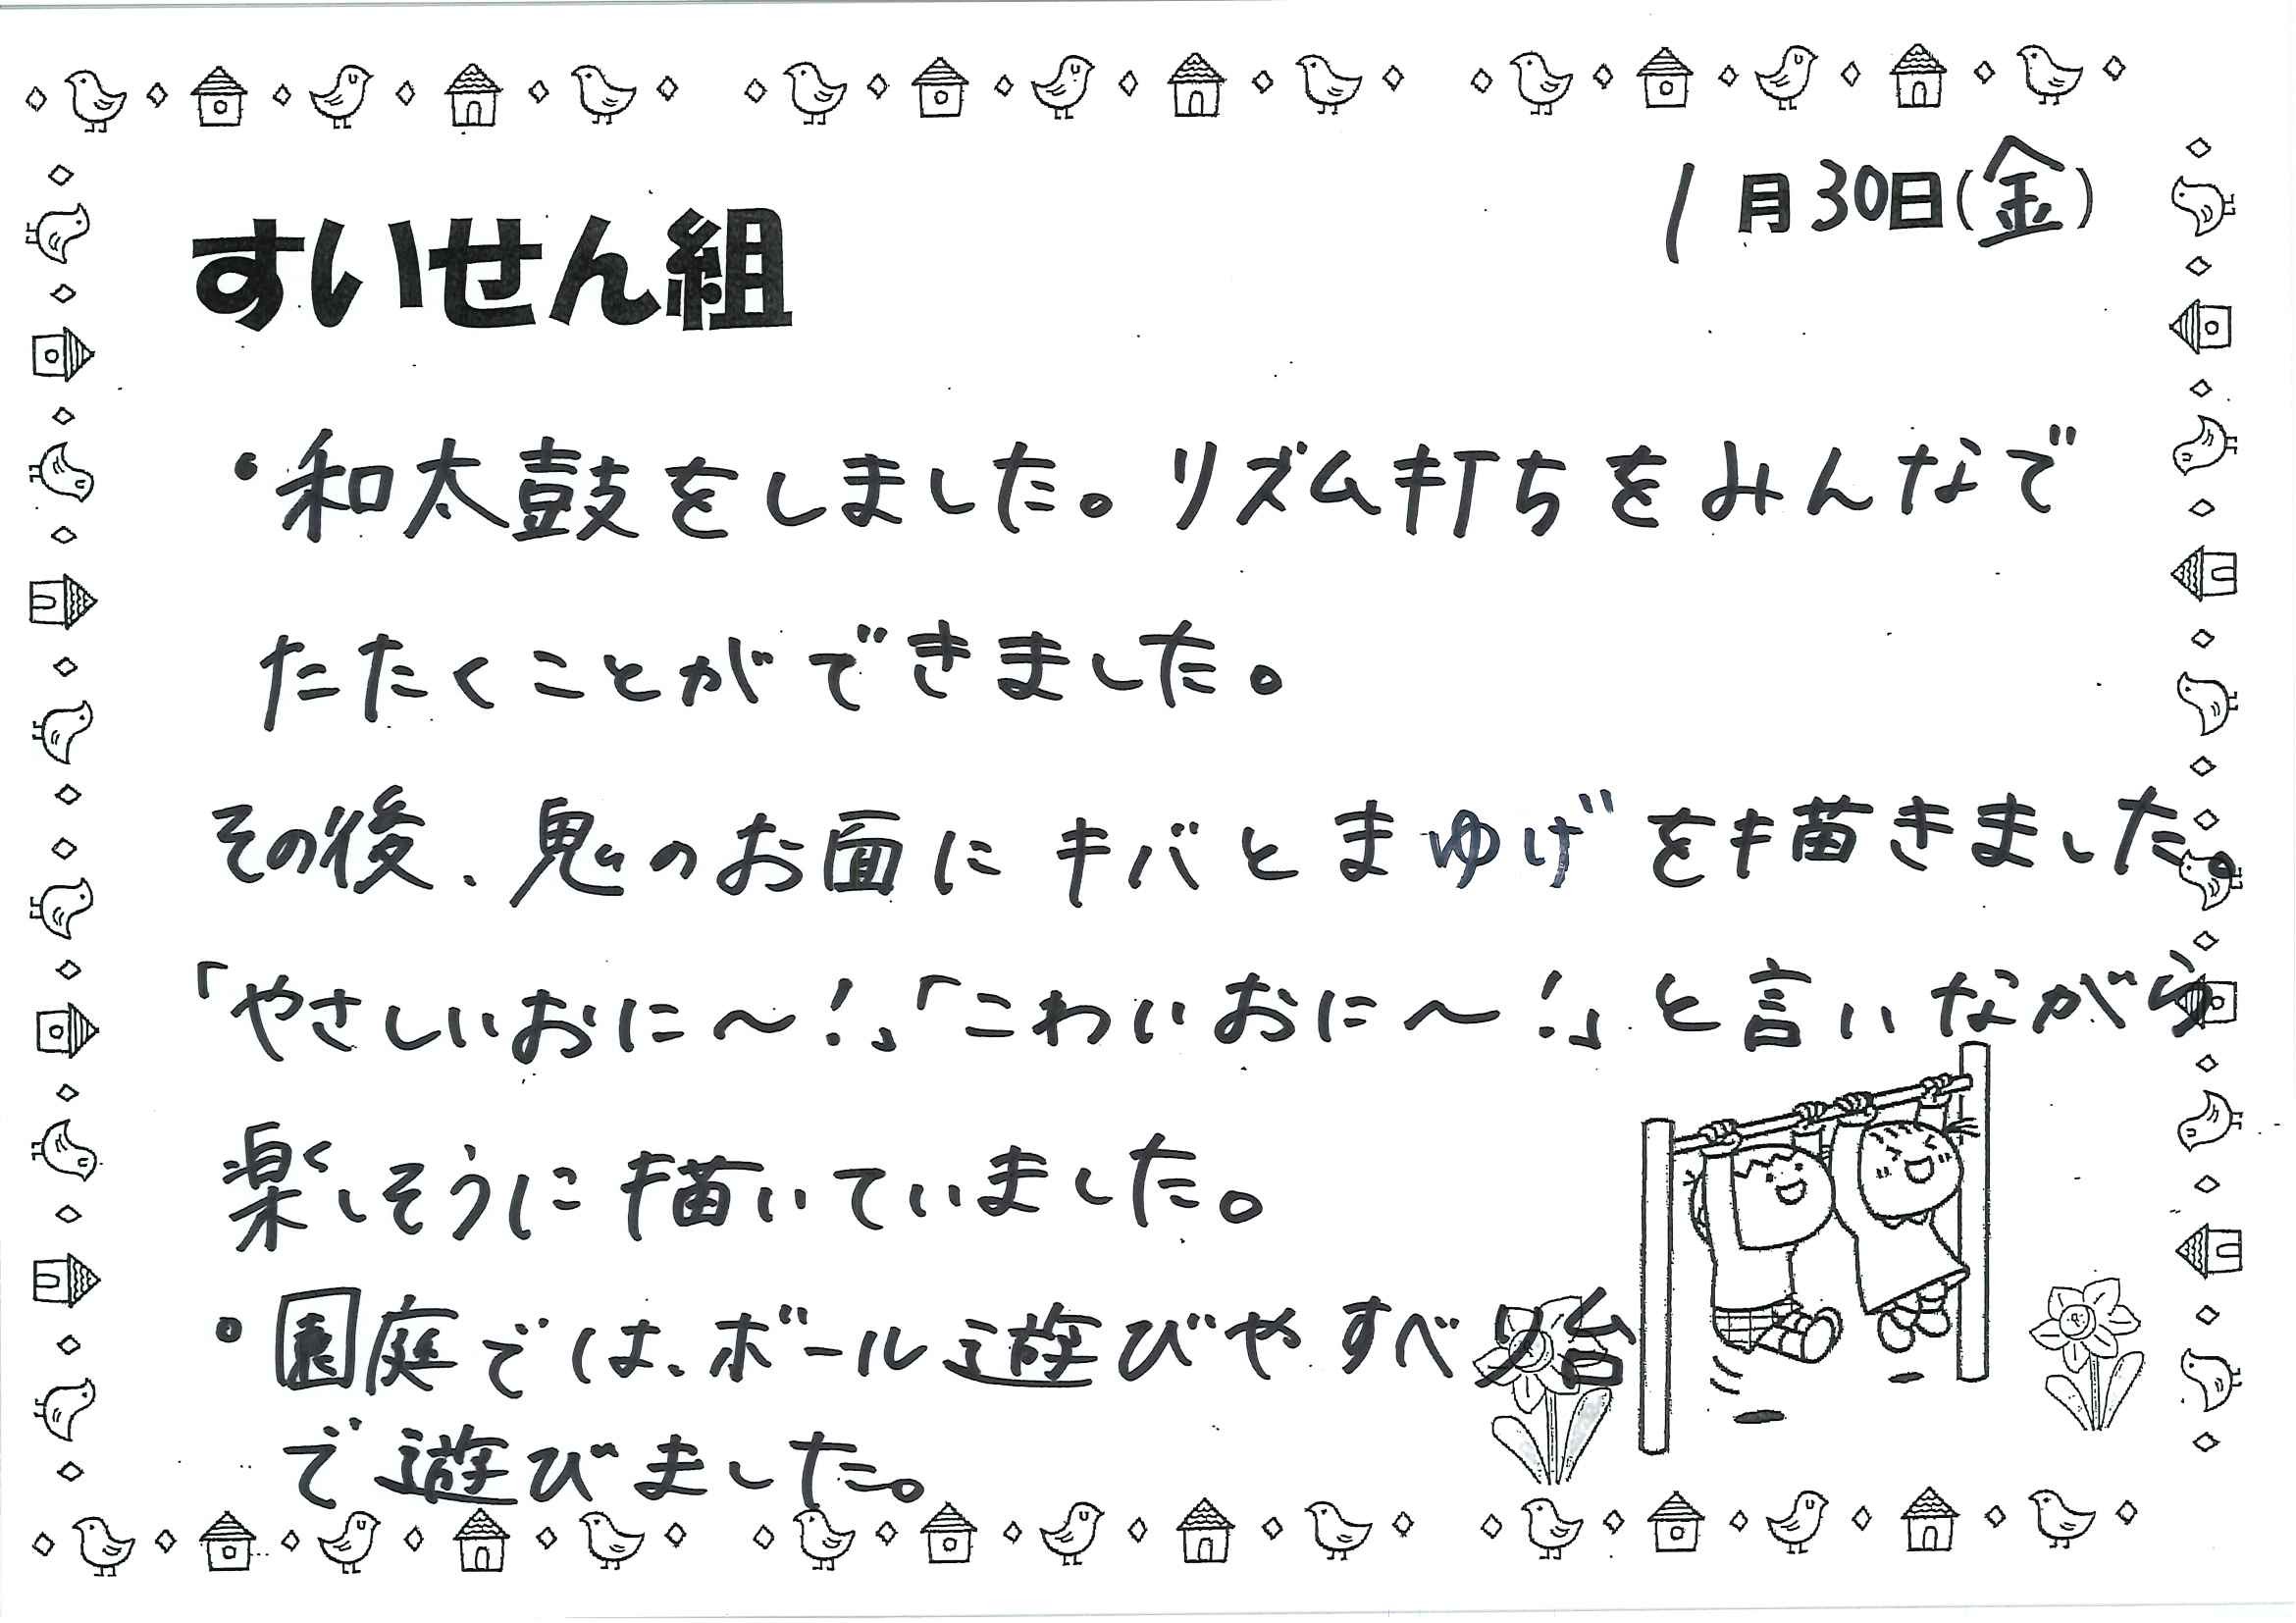 1月30日(金)
すいせん組
・和太鼓をしました。リズム打ちをみんなで
たたくことができました。
その後、鬼のお面にキバとまゆげを描きました。
「やさしいおに〜!」「こわいおに〜!」と言いながら
楽しそうに描いていました。
・園庭では、ボール遊びやすべり台
で遊びました。